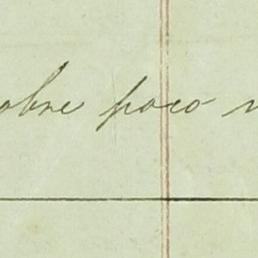 obre poco